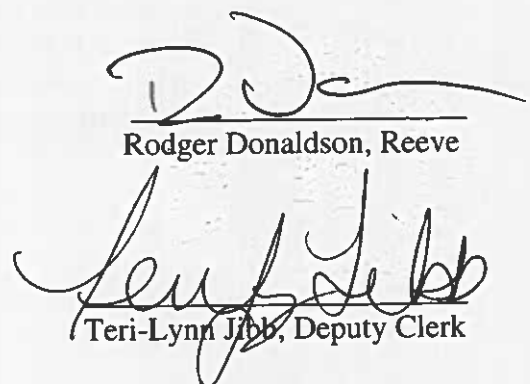 Rodger Donaldson, Reeve
Teri-Lynn Jibb, Deputy Clerk